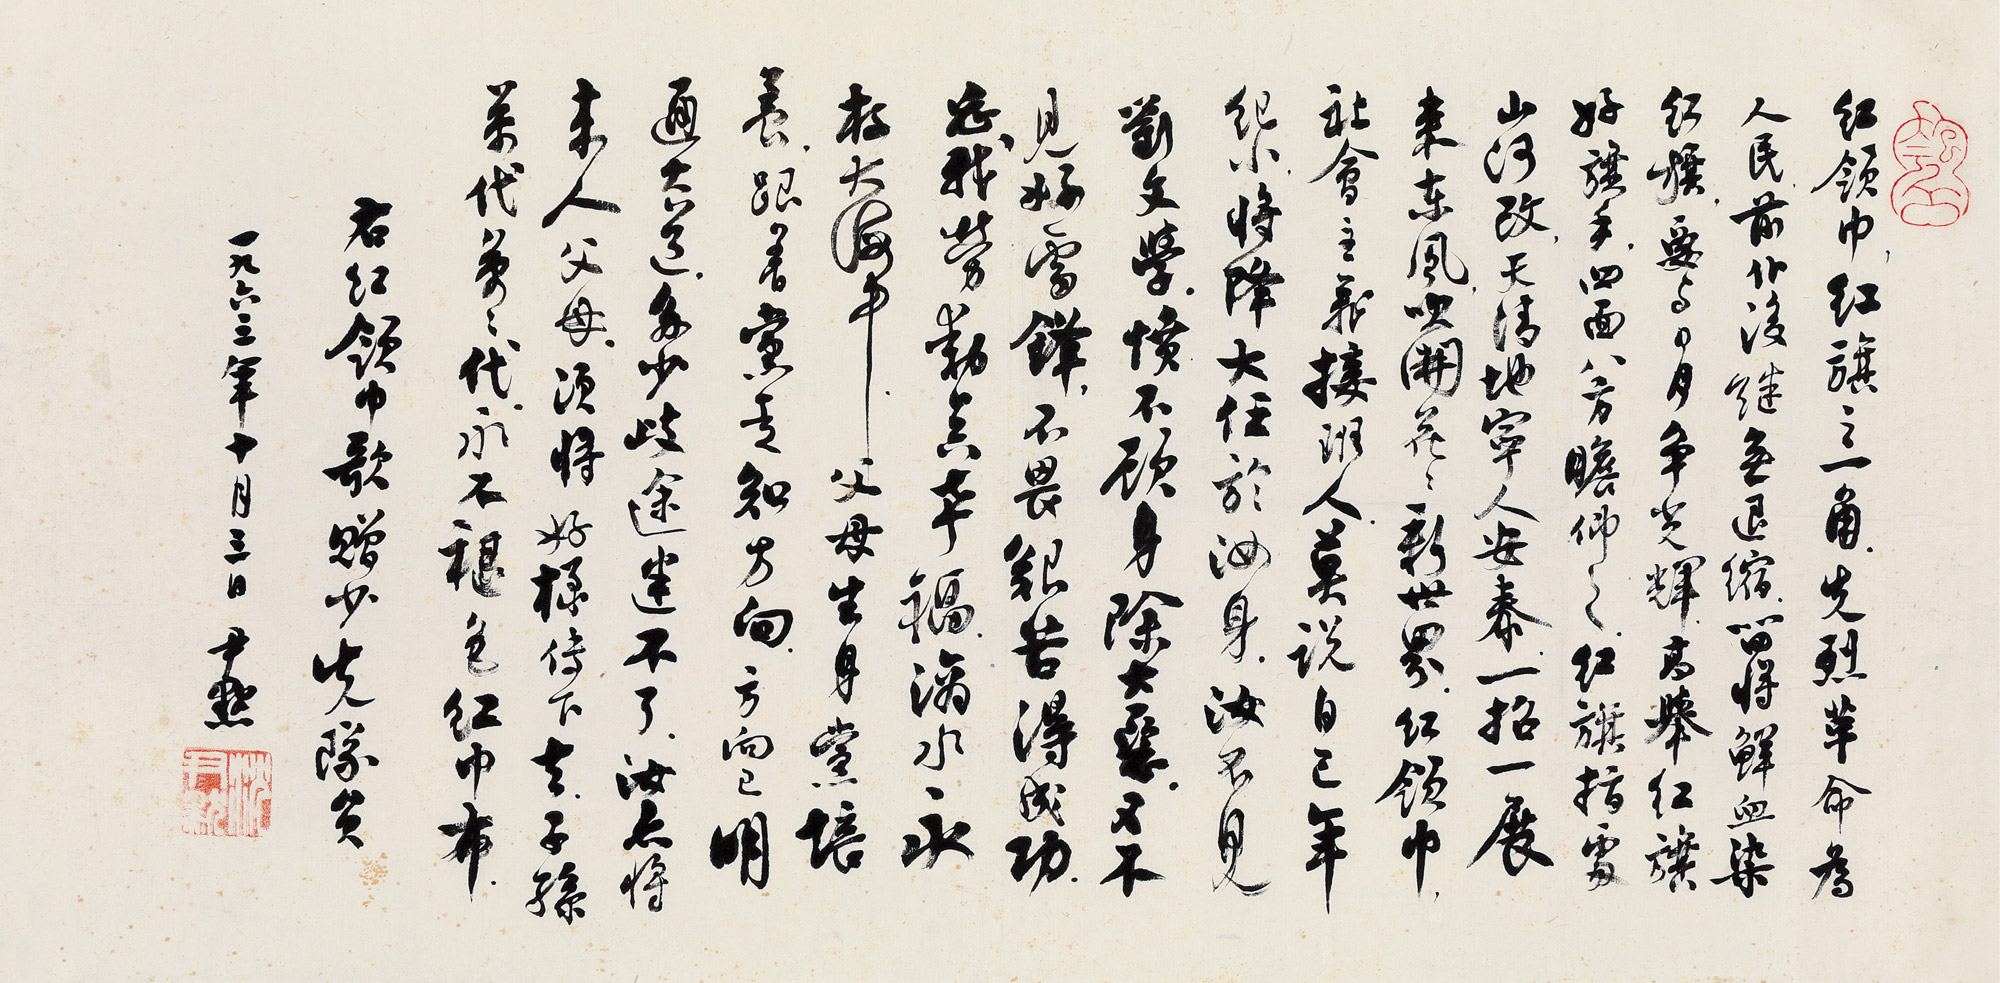 红领巾，红旗之一角。先烈革命为
人民，前仆後继无退缩。留得鲜血染
红旗，要与日月争光辉。高举红旗
好旗手，四面八方瞻仰之。红旗指处
山河改，天清地宁人安泰。一招一展
来东风，吹开花花新世界。红领巾，
社会主义接班人。莫说自己年
纪小，将降大任於汝身。汝不见
刘文学，愤不顾身除大恶。又不
见好雷锋，不畏艰苦得成功。
忘我劳动真幸福，滴水永
存大海中。父母生身党培
养，跟着党走知方向。方向已明
通大道，多少歧途迷不了。汝亦将
来人父母，须将好样传下去。子孙
万代万万代，永不褪色红巾布。
右红领巾歌赠少先队员
一九六三年十月三日 尹默
沈尹默